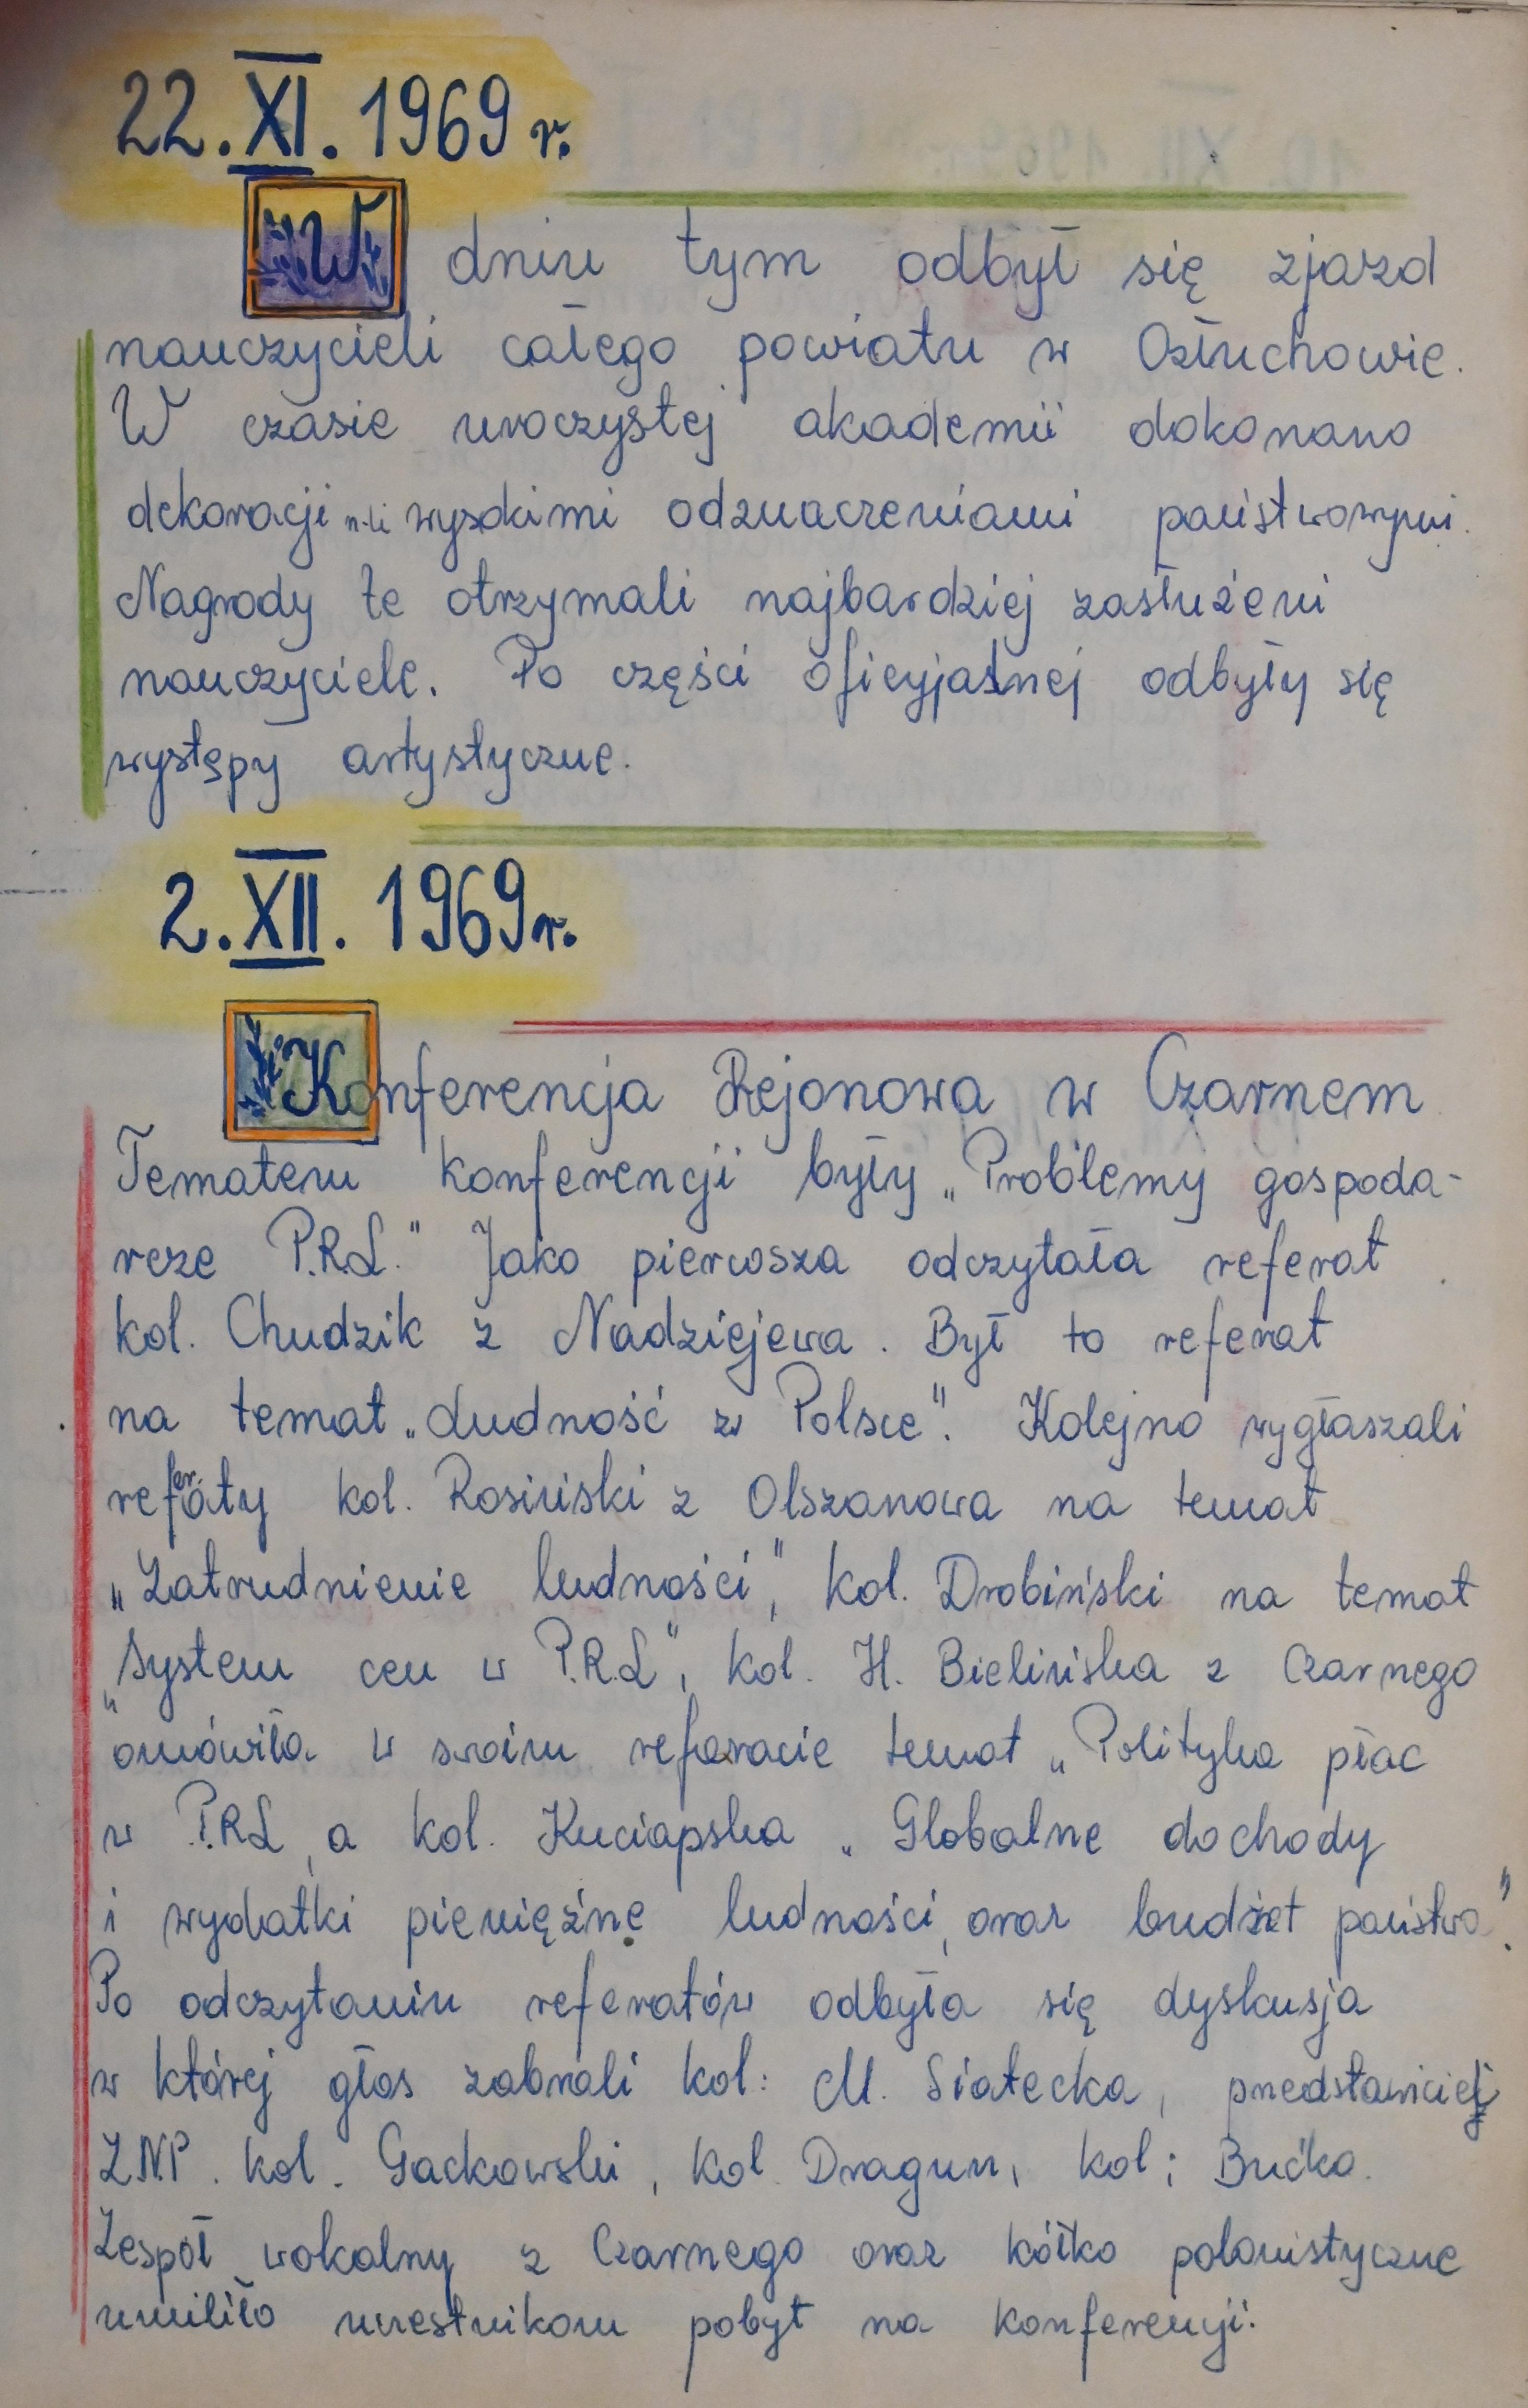 22.XI.1969 r.
W dniu tym odbył się zjazd
nauczycieli całego powiatu w Człuchowie.
W czasie uroczystej akademii dokonano
dekoracji n-li wysokimi odznaczeniami państwowymi.
Nagrody te otrzymali najbardziej zasłużeni
nauczyciele. Po części oficyjalnej odbyły się
występy artystyczne.
2.XII.1969r.
Konferencja Rejonowa w Czarnem
Tematem konferencji były „Problemy gospoda-
rcze P.R.L." Jako pierwsza odczytała referat
kol. Chudzik z Nadziejewa. Był to referat
na temat „Ludność w Polsce". Kolejno wygłaszali
referaty kol. Rosiński z Olszanowa na temat
„Zatrudnienie ludności", kol. Drobiński na temat
„System cen w P.R.L", kol. H. Bielińska z Czarnego
omówiła w swoim referacie temat „Polityka płac
w P.R.L, a kol. Kuciapska „Globalne dochody
i wydatki pieniężne ludności, oraz budżet państwa".
Po odczytaniu referatów odbyła się dyskusja
w której głos zabrali kol: M. Siatecka, przedstawiciel
Z.N.P. kol. Gackowski, kol. Dragun, kol; Bućko.
Zespół wokalny z Czarnego oraz kółko polonistyczne
umiliło uczestnikom pobyt na konferencji.